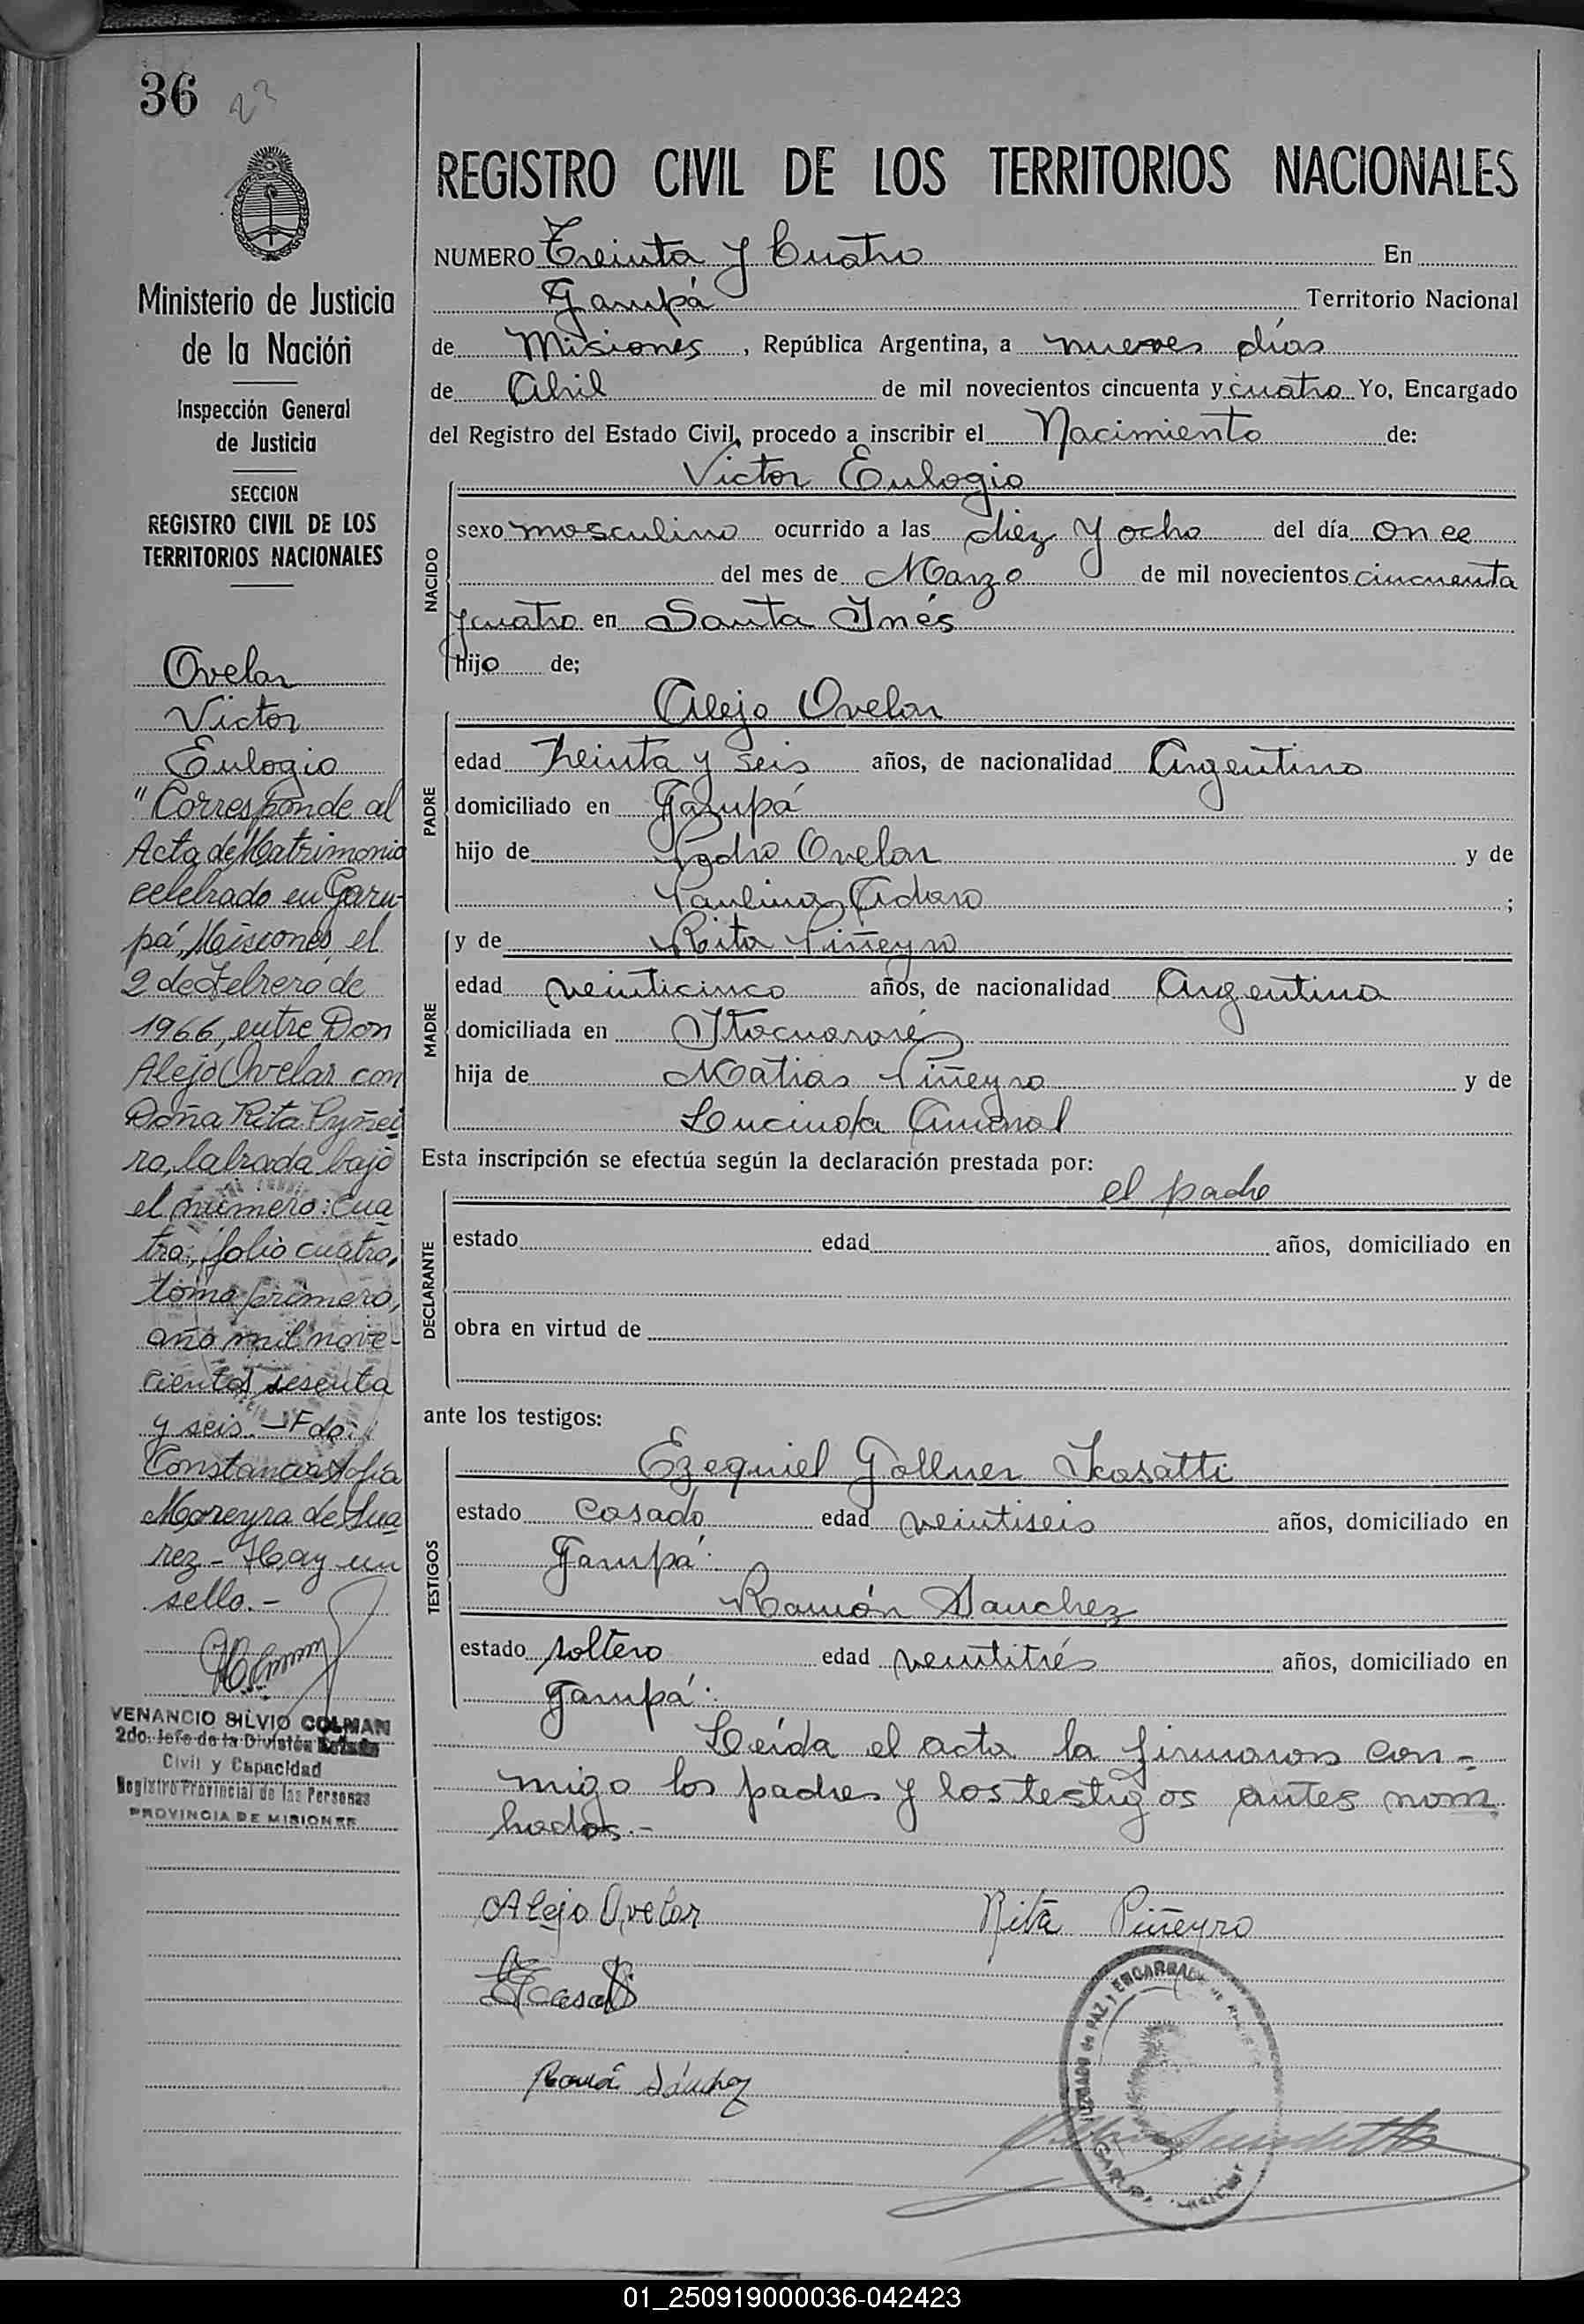 36 23
Ministerio de Justicia
de la Nación
Inspección General
de Justicia
SECCION
REGISTRO CIVIL DE LOS
TERRITORIOS NACIONALES
Ovelar
Victor
Eulogio
"Corresponde al
Acta de Matrimonio
celebrado en Garu-
pá, Misiones, el
2 de Febrero de
1966, entre Don
Alejo Ovelar con
Doña Rita Pyñei
ro, labrada bajo
el número: cua
tro; folio cuatro,
tomo primero,
año mil nove-
cientos sesenta
y seis. - Fdo:
Constancia Sofia
Moreyra de Sua
rez - Hay un
sello. -
VENANCIO SILVIO COLMAN
2do. Jefe de la División Estado
Civil y Capacidad
Registro Provincial de las Personas
PROVINCIA DE MISIONES
REGISTRO CIVIL DE LOS TERRITORIOS NACIONALES
NUMERO Treinta y Cuatro En
Garupá Territorio Nacional
de Misiones, República Argentina, a nueves días
de Abril de mil novecientos cincuenta y cuatro Yo, Encargado
del Registro del Estado Civil, procedo a inscribir el Nacimiento de:
NACIDO
Victor Eulogio
sexo masculino ocurrido a las diez y ocho del día once
del mes de Marzo de mil novecientos cincuenta
y cuatro en Santa Inés
hijo de;
PADRE
Alejo Ovelar
edad treinta y seis años, de nacionalidad Argentino
domiciliado en Garupá
hijo de Pedro Ovelar y de
Paulina ;
MADRE
y de Rita Piñeyro
edad veinticinco años, de nacionalidad Argentina
domiciliada en Itacuararé
hija de Matias Piñeyro y de
Lucinda Amaral
Esta inscripción se efectúa según la declaración prestada por:
DECLARANTE
el padre
estado edad años, domiciliado en
obra en virtud de
ante los testigos:
TESTIGOS
Ezequiel Gollner
estado Casado edad veintiseis años, domiciliado en
Garupá.
Ramón Sanchez
estado soltero edad veintitrés años, domiciliado en
Garupá.
Leída el acta la firmaron con-
migo los padres y los testigos antes nom
brados.-
Alejo Ovelar Rita Piñeyro
Ramón Sánchez
JUZGADO de PAZ y ENCARGADO DE REGISTRO
GARUPA MISIONES
01_250919000036-042423